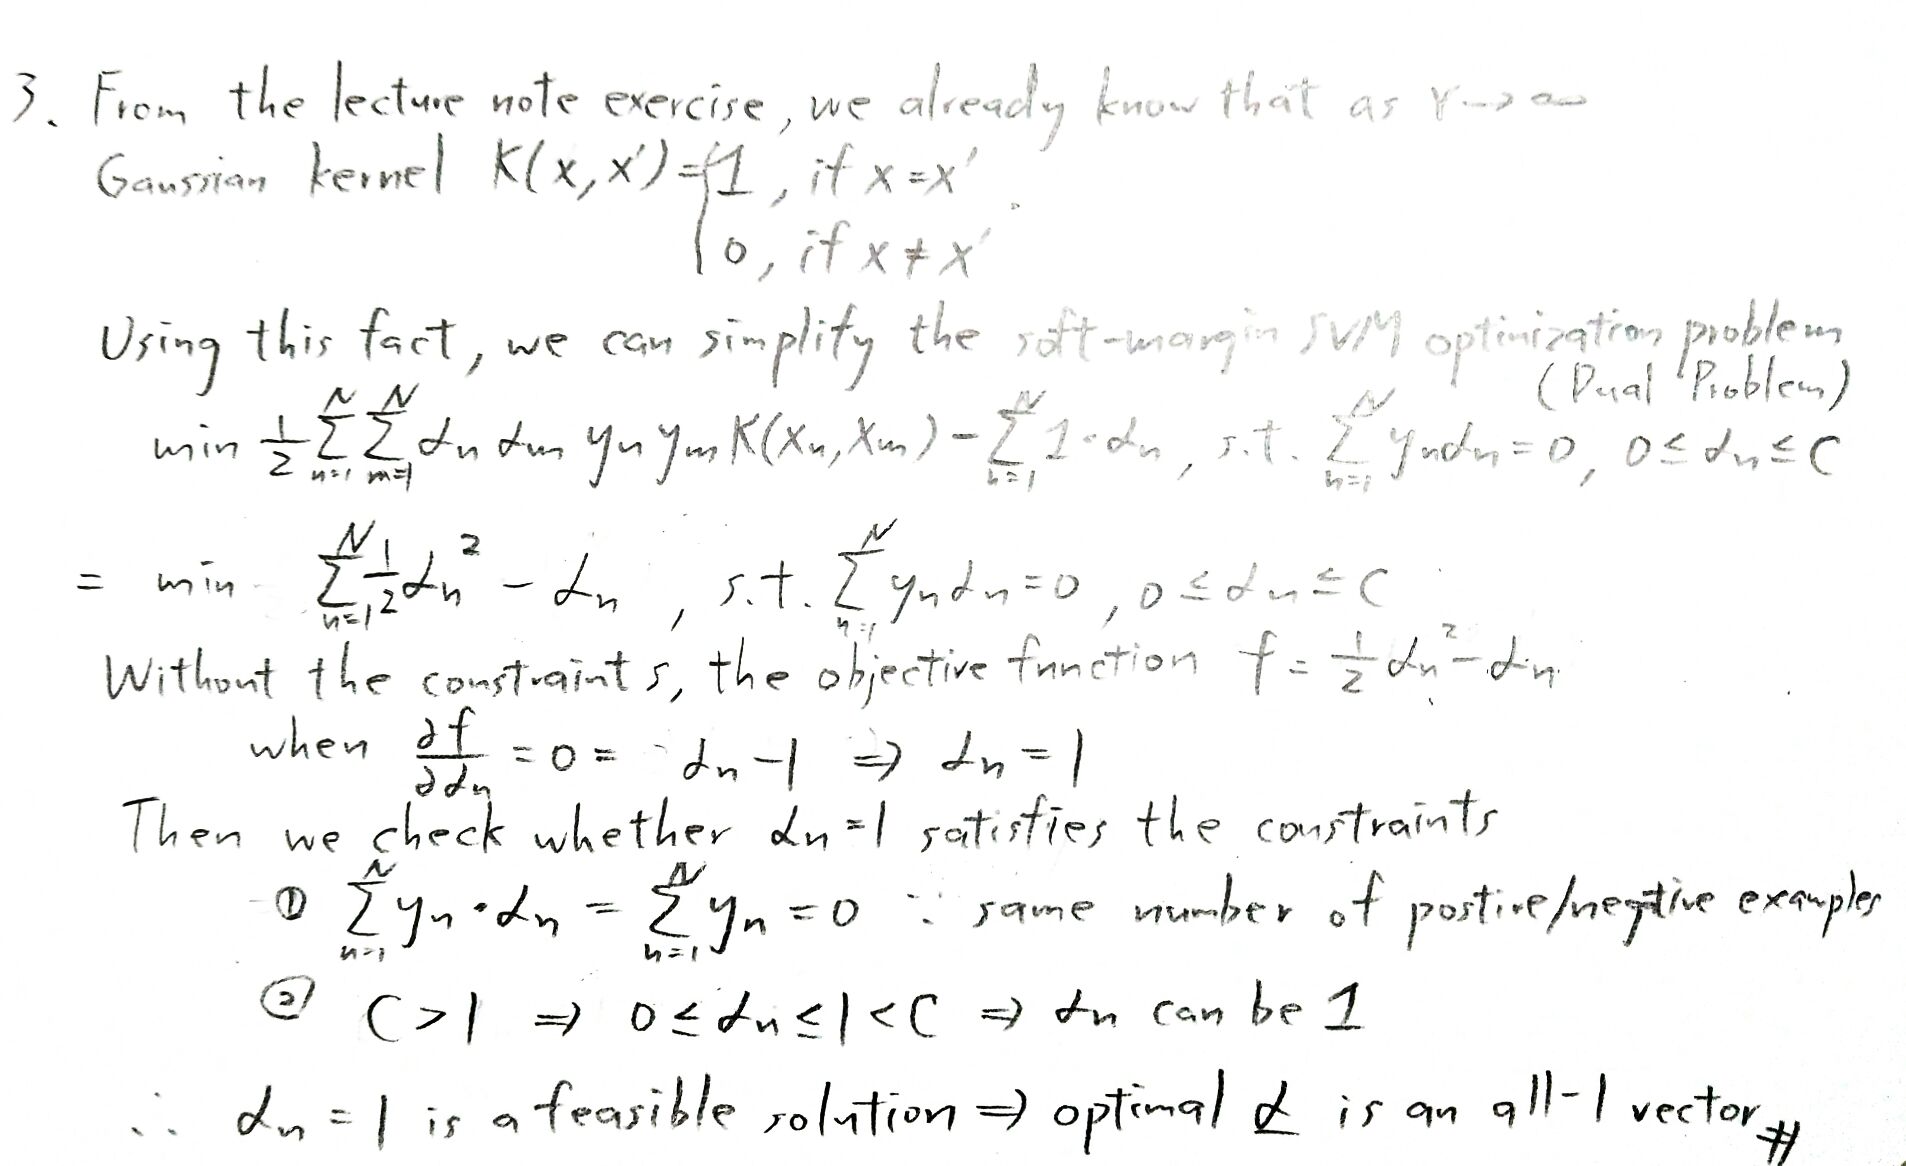 3. From the lecture note exercise, we already know that as γ → ∞
Gaussian kernel K(x, x') = { 1, if x = x'
0, if x ≠ x'
Using this fact, we can simplify the soft-margin SVM optimization problem
(Dual Problem)
min 1/2 Σ_{n=1}^{N} Σ_{m=1}^{N} αn αm yn ym K(xn, xm) - Σ_{n=1}^{N} 1·αn, s.t. Σ_{n=1}^{N} yn αn = 0, 0 ≤ αn ≤ C
= min Σ_{n=1}^{N} 1/2 αn² - αn, s.t. Σ_{n=1}^{N} yn αn = 0, 0 ≤ αn ≤ C
Without the constraints, the objective function f = 1/2 αn² - αn
when ∂f/∂αn = 0 = αn - 1 ⇒ αn = 1
Then we check whether αn = 1 satisfies the constraints
① Σ_{n=1}^{N} yn · αn = Σ_{n=1}^{N} yn = 0 ∵ same number of postive/negative examples
② C > 1 ⇒ 0 ≤ αn ≤ 1 < C ⇒ αn can be 1
∴ αn = 1 is a feasible solution ⇒ optimal α is an all-1 vector #